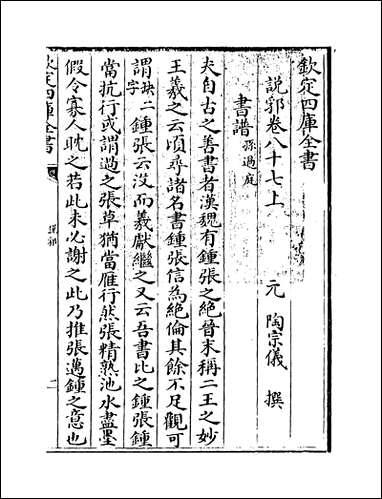 欽定四庫全書
說郛卷八十七上
元 陶宗儀 撰
書譜 孫過庭
夫自古之善書者漢魏有鍾張之絶晉末稱二王之妙
王羲之云頃尋諸名書鍾張信為絶倫其餘不足觀可
謂缺二字鍾張云没而羲獻繼之又云吾書比之鍾張鍾
當抗行或謂過之張草猶當雁行然張精熟池水盡墨
假令寡人耽之若此未必謝之此乃推張邁鍾之意也
欽定四庫全書
說郛